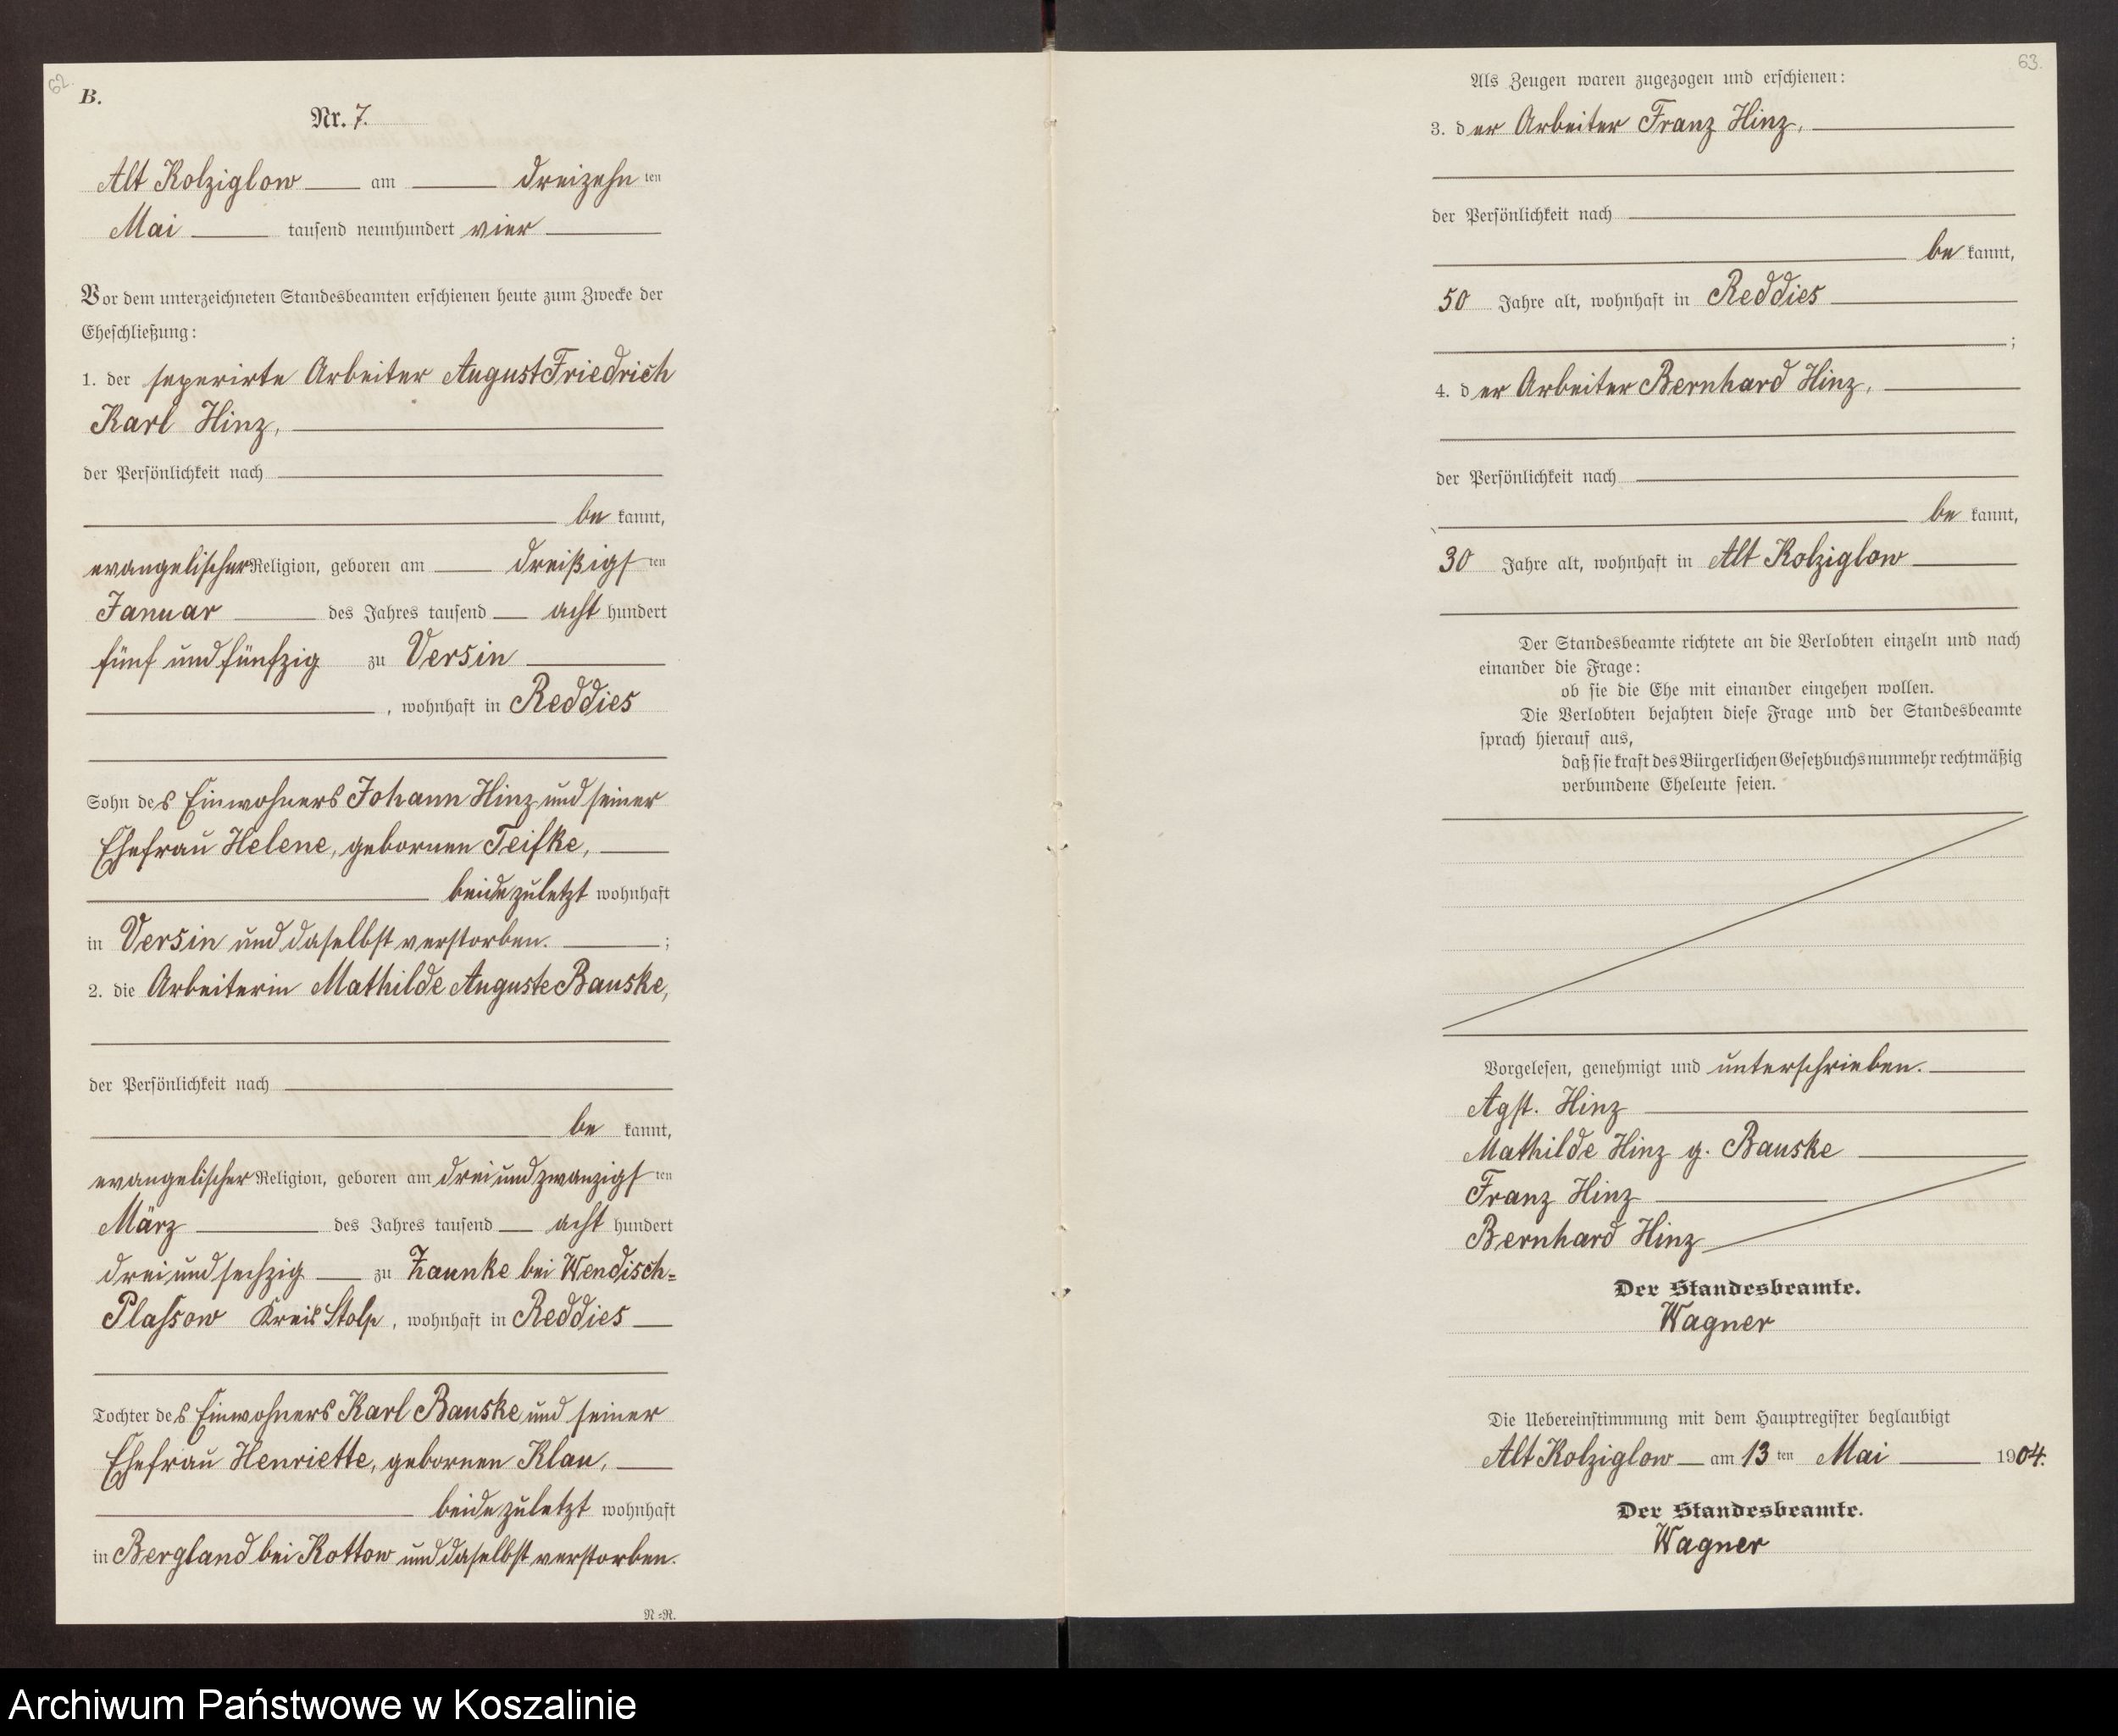 62.
B.
Nr. 7.
Alt Kolziglow am dreizehn ten
Mai tausend neunhundert vier
Vor dem unterzeichneten Standesbeamten erschienen heute zum Zwecke der
Eheschließung:
1. der seperirte Arbeiter August Friedrich
Karl Hinz,
der Persönlichkeit nach
be kannt,
evangelischer Religion, geboren am dreißigs ten
Januar des Jahres tausend acht hundert
fünf und fünfzig zu Versin
, wohnhaft in Reddies
Sohn des Einwohners Johann Hinz und seiner
Ehefrau Helene, gebornen Teifke,
beide zuletzt wohnhaft
in Versin und daselbst verstorben. ;
2. die Arbeiterin Mathilde Auguste Bauske,
der Persönlichkeit nach
be kannt,
evangelischer Religion, geboren am drei und zwanzigs ten
März des Jahres tausend acht hundert
drei und sechzig zu Zaunke bei Wendisch=
Plassow Kreis Stolp, wohnhaft in Reddies
Tochter des Einwohners Karl Bauske und seiner
Ehefrau Henriette, gebornen Klau,
beide zuletzt wohnhaft
in Bergland bei Kottow und daselbst verstorben.
N=R.
63.
Als Zeugen waren zugezogen und erschienen:
3. der Arbeiter Franz Hinz,
der Persönlichkeit nach
be kannt,
50 Jahre alt, wohnhaft in Reddies
;
4. der Arbeiter Bernhard Hinz,
der Persönlichkeit nach
be kannt,
30 Jahre alt, wohnhaft in Alt Kolziglow
Der Standesbeamte richtete an die Verlobten einzeln und nach
einander die Frage:
ob sie die Ehe mit einander eingehen wollen.
Die Verlobten bejahten diese Frage und der Standesbeamte
sprach hierauf aus,
daß sie kraft des Bürgerlichen Gesetzbuchs nunmehr rechtmäßig
verbundene Eheleute seien.
Vorgelesen, genehmigt und unterschrieben.
Agst. Hinz
Mathilde Hinz g. Bauske
Franz Hinz
Bernhard Hinz
Der Standesbeamte.
Wagner
Die Uebereinstimmung mit dem Hauptregister beglaubigt
Alt Kolziglow am 13 ten Mai 1904.
Der Standesbeamte.
Wagner
Archiwum Państwowe w Koszalinie